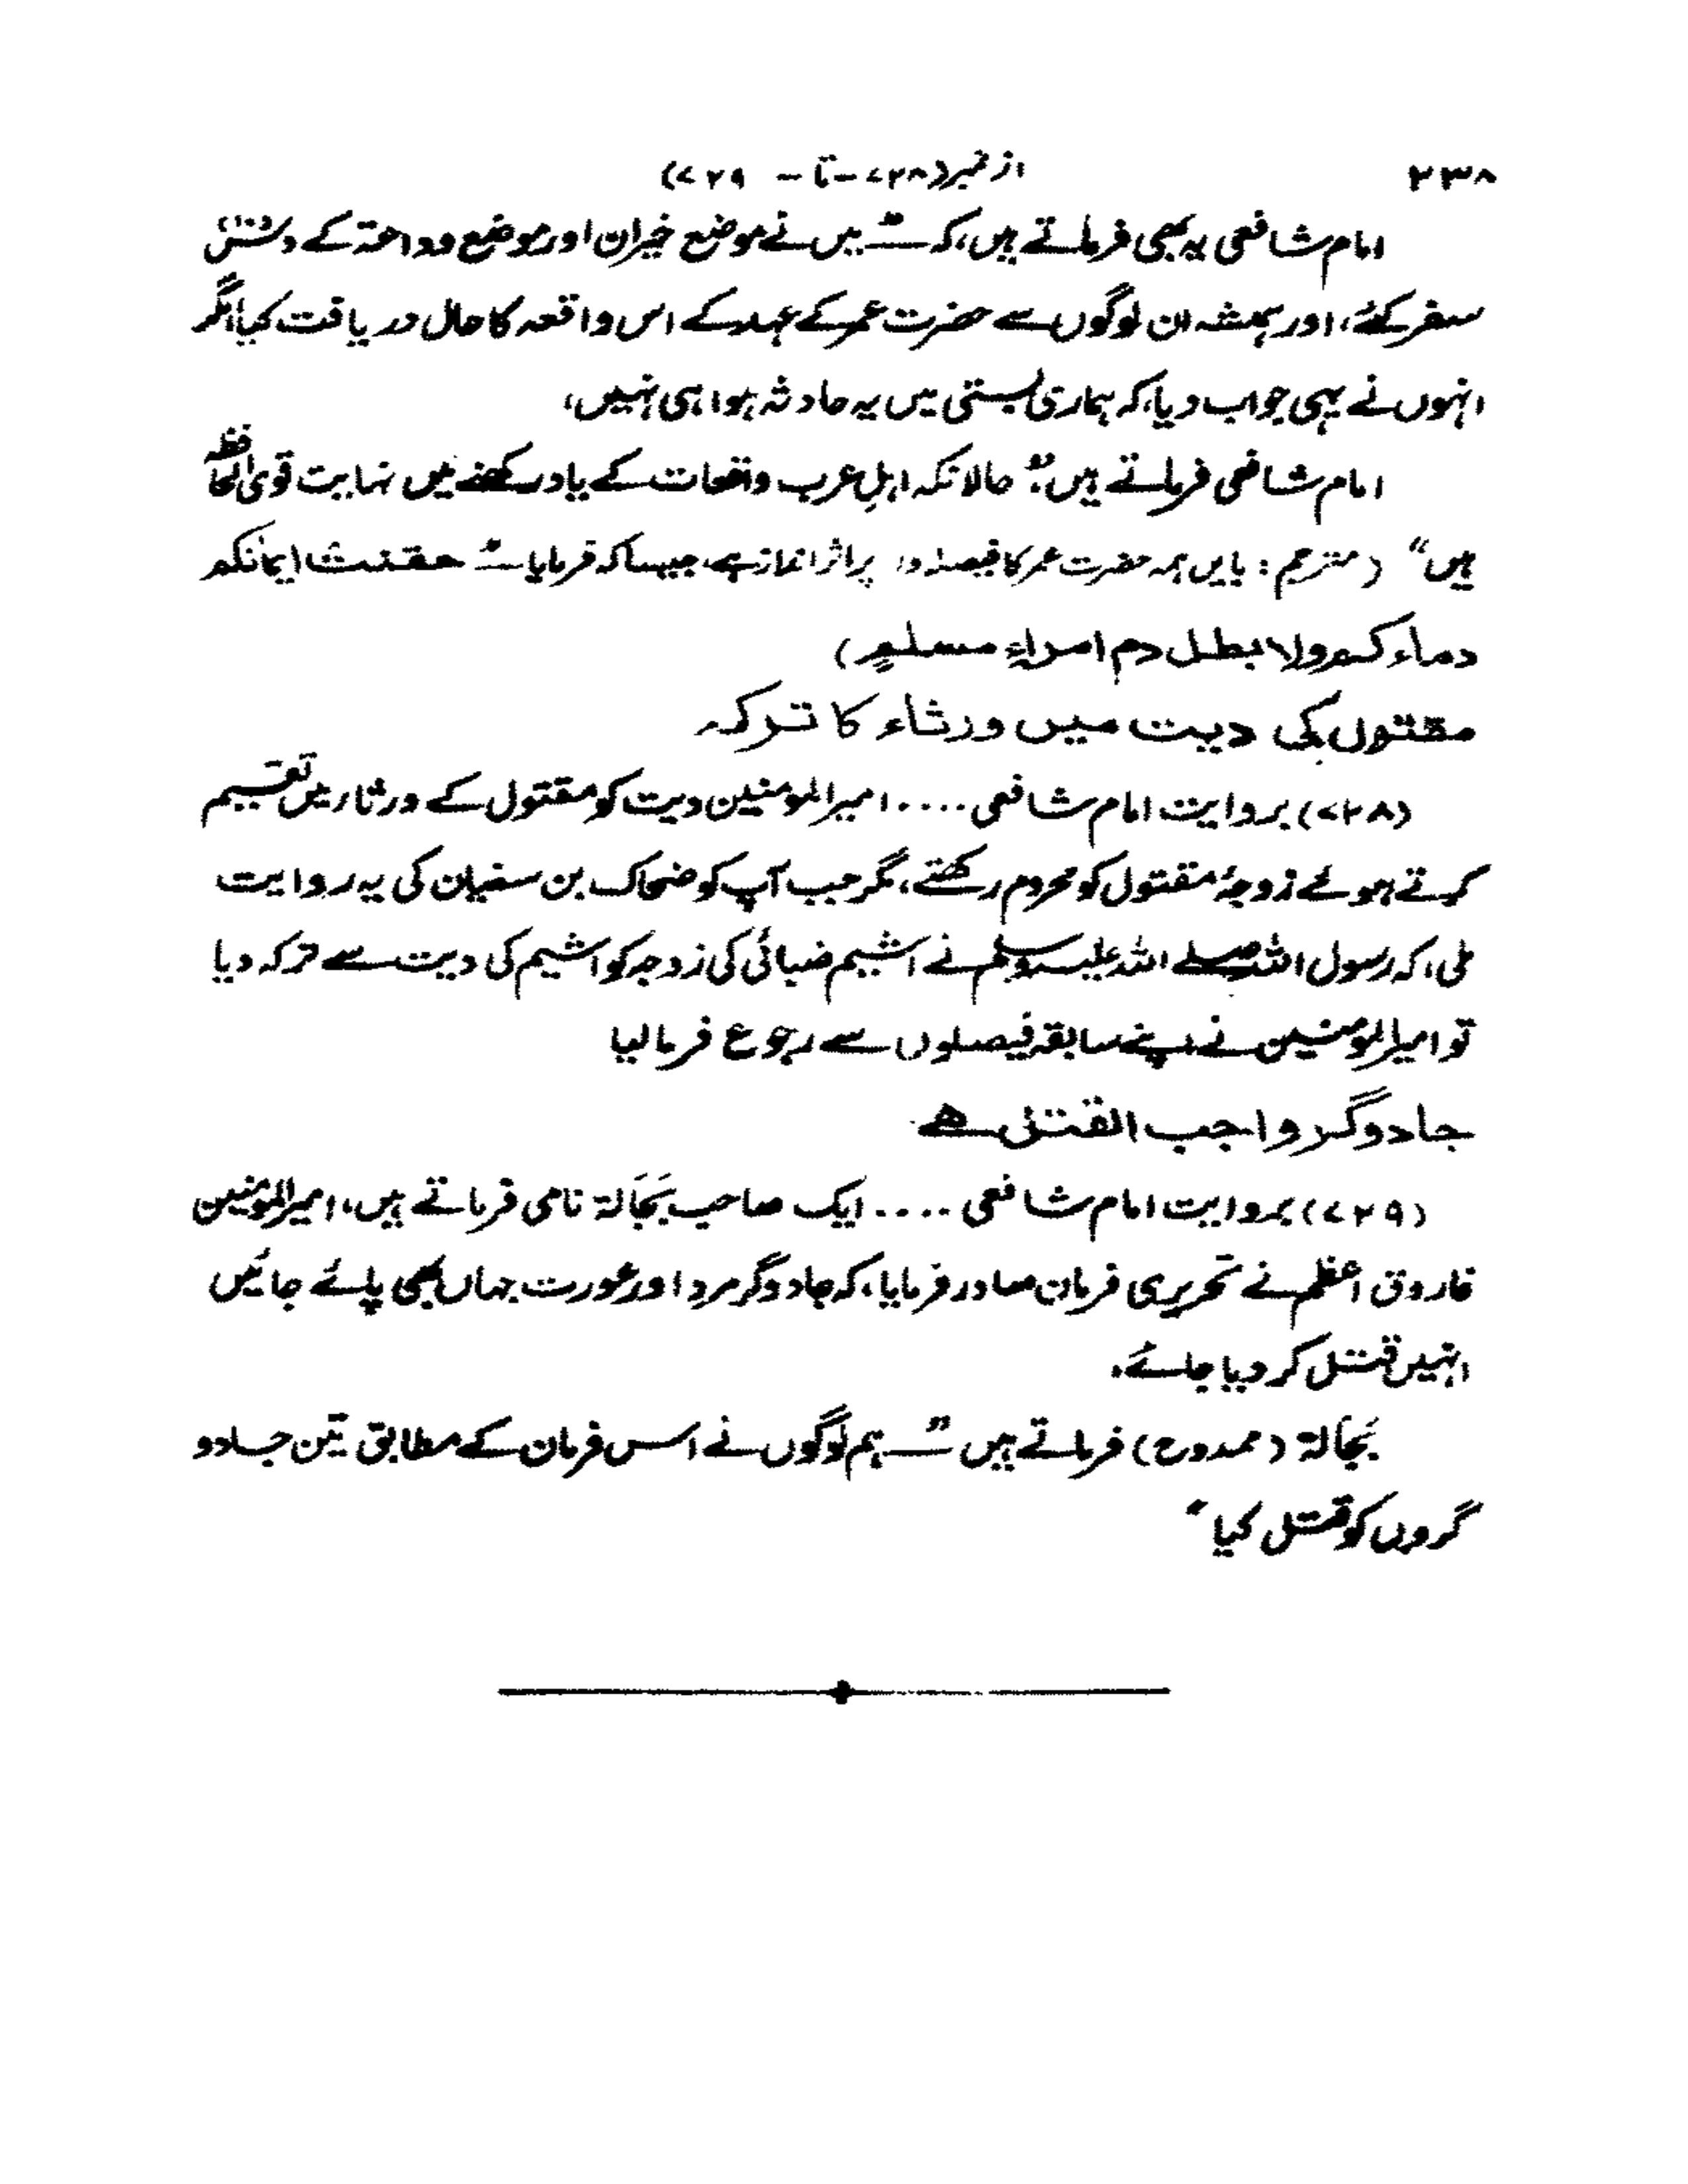 ۲۳۸
از نمبر (۷۲۸ - تا - ۷۲۹)
امام شافعی یہ بھی فرماتے ہیں، کہ "میں نے موضع خیران اور موضع وداعۃ کے دس
سفر کئے، اور ہمیشہ ان لوگوں سے حضرت عمر کے عہد کے اس واقعہ کا حال دریافت کیا، مگر
انہوں نے یہی جواب دیا، کہ ہماری بستی میں یہ حادثہ ہوا ہی نہیں،
امام شافعی فرماتے ہیں: "حالانکہ اہلِ عرب واقعات کے یاد رکھنے میں نہایت قوی الحافظہ
ہیں" (مترجم: بایں ہمہ حضرت عمر کا فیصلہ پر اثر انداز ہے، جیسا کہ فرمایا "حقنت ایمانکم
دماءکم ولا یطل دم امراءٍ مسلمٍ)
مقتول کی دیت میں ورثاء کا ترکہ
(۷۲۸) بروایت امام شافعی .... امیرالمومنین دیت کو مقتول کے ورثاء میں تقسیم
کرتے ہوئے زوجۂ مقتول کو محروم رکھتے، مگر جب آپ کو ضحاک بن سفیان کی یہ روایت
ملی، کہ رسول اللہ صلے اللہ علیہ وسلم نے اشیم ضبائی کی زوجہ کو اشیم کی دیت سے ترکہ دیا
تو امیرالمومنین نے اپنے سابقہ فیصلوں سے رجوع فرما لیا
جادوگر واجب القتل ہے
(۷۲۹) بروایت امام شافعی .... ایک صاحب بَجَالۃ نامی فرماتے ہیں، امیرالمومنین
فاروق اعظم نے تحریری فرمان صادر فرمایا، کہ جادوگر مرد اور عورت جہاں بھی پائے جائیں
انہیں قتل کر دیا جائے۔
بَجَالۃ (ممدوح) فرماتے ہیں "ہم لوگوں نے اس فرمان کے مطابق تین جادو
گروں کو قتل کیا"